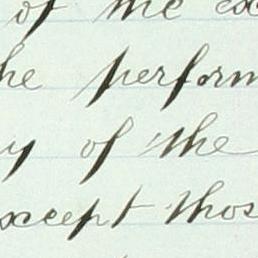 of the ex
he perform
y of the
xcept thos